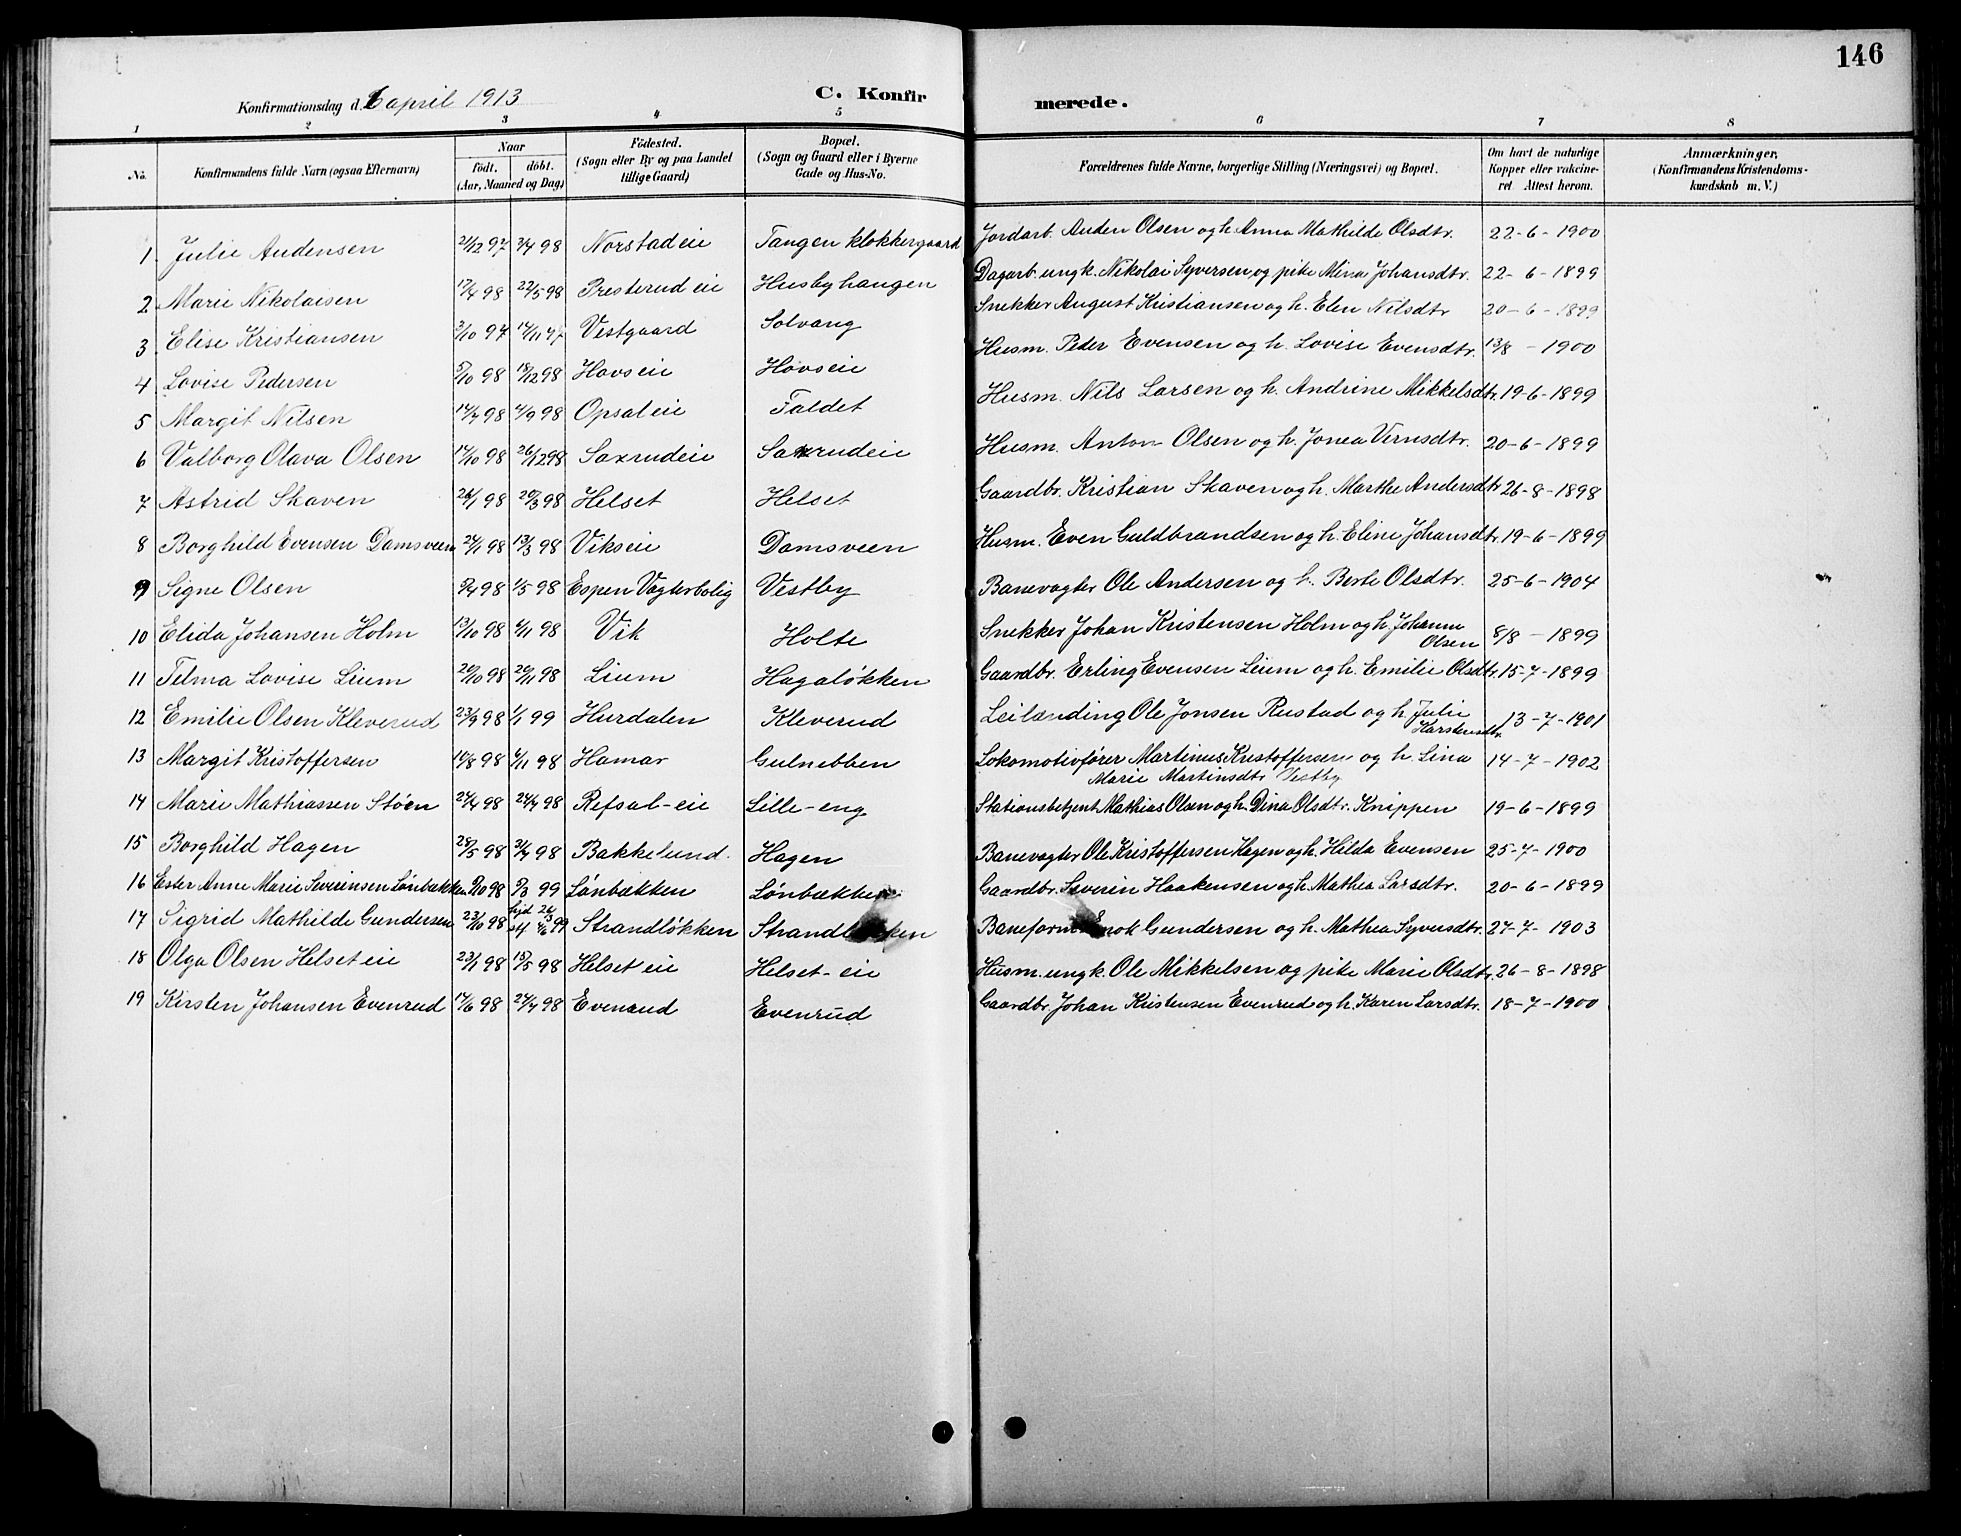 146
Konfirmationsdag d. 6 april 1913
C. Konfirmerede.
1 2 3 4 5 6 7 8
No. Konfirmandens fulde Navn (ogsaa Efternavn) Naar födt. döbt. (Aar, Maaned og Dag) Födested. (Sogn eller By og paa Landet tillige Gaard) Bopæl. (Sogn og Gaard eller i Byerne Gade og Hus-No. Forældrenes fulde Navne, borgerlige Stilling (Næringsvei) og Bopæl. Om havt de naturlige Kopper eller vakcineret. Attest herom. Anmærkninger, (Konfirmandens Kristendomskundskab m. V.)
1 Julie Audensen 21/12 97 98 Norstadeie Tangen klokkergaard Jordarb. Auden Olsen og h. Anna Mathilde Olsdtr. 22-6-1900
2 Marie Nikolaisen 17/4 98 22/5 98 Presterudeie Husbyhangen Dagarb. ungk. Nikolai Syversen og pike Mina Johansdtr. 22-6-1899
3 Elise Kristiansen 3/10 97 14/11 97 Vestgaard Solvang Snekker August Kristiansen og h. Elen Nilsdtr 20-6-1899
4 Lovise Pedersen 5/10 98 18/12 98 Hovseie Hovseie Husm. Peder Evensen og h. Lovise Evensdtr. 13/8 - 1900
5 Margit Nilsen 14/7 98 4/9 98 Opsaleie Faldet Husm. Nils Larsen og h. Andrine Mikkelsdtr. 19-6-1899
6 Valborg Olava Olsen 17/10 98 26/12 98 Saxrudeie Saxrudeie Husm. Anton Olsen og h. Jonea Virnsdtr. 20-6-1899
7 Astrid Skaven 26/1 98 20/3 98 Helset Helset Gaardbr. Kristian Skaven og h. Marthe Andersdtr 26-8-1898
8 Borghild Evensen Damsveen 24/1 98 13/3 98 Vikseie Damsveen Husm. Even Guldbrandsen og h. Eline Johansdtr. 19-6-1899
9 Signe Olsen 98 1/5 98 Espen Vagterbolig Vestby Banevagter Ole Andersen og h. Berte Olsdtr. 25-6-1904
10 Elida Johansen Holm 13/10 98 98 Vik Holte Snekker Johan Kristensen Holm og h. Johanne Olsen 8/8 - 1899
11 Telma Lovise Lium 20/10 98 20/11 98 Lium Hagaløkken Gaardbr. Erling Evensen Lium og h. Emilie Olsdtr. 15-7-1899
12 Emilie Olsen Kleverud 23/9 98 1/1 99 Hurdalen Kleverud Leilænding Ole Jonsen Rustad og h. Julie Karstensdtr. 13-7-1901
13 Margit Kristoffersen 14/8 98 6/11 98 Hamar Gulnebben Lokomotivfører Martinus Kristoffersen og h. Lina Marie Martinsdtr. Vestby 14-7-1902
14 Marie Mathiassen Støen 98 24/4 98 Refsal-eie Lille-eng Stationsbetjent Mathias Olsen og h. Dina Olsdtr. Knippen 19-6-1899
15 Borghild Hagen 28/5 98 31/7 98 Bakkelund. Hagen Banevagter Ole Kristoffersen Hagen og h. Hilda Evensen 25-7-1900
16 Ester Anne Marie Severinsen Lønbækken 98 5/3 99 Lønbækken Lønbækken Gaardbr. Severin Haakensen og h. Mathea Larsdtr. 20-6-1899
17 Sigrid Mathilde Gundersen 23/10 98 99 Strandløkken Strandløkken Baneform. Enok Gundersen og h. Mathea Syversdtr. 27-7-1903
18 Olga Olsen Helseteie 23/1 98 15/5 98 Helseteie Helset-eie Husm. ungk. Ole Mikkelsen og pike Marie Olsdtr. 26-8-1898
19 Kirsten Johansen Evenrud 17/6 98 24/7 98 Evenrud Evenrud Gaardbr. Johan Kristensen Evenrud og h. Karen Larsdtr. 18-7-1900